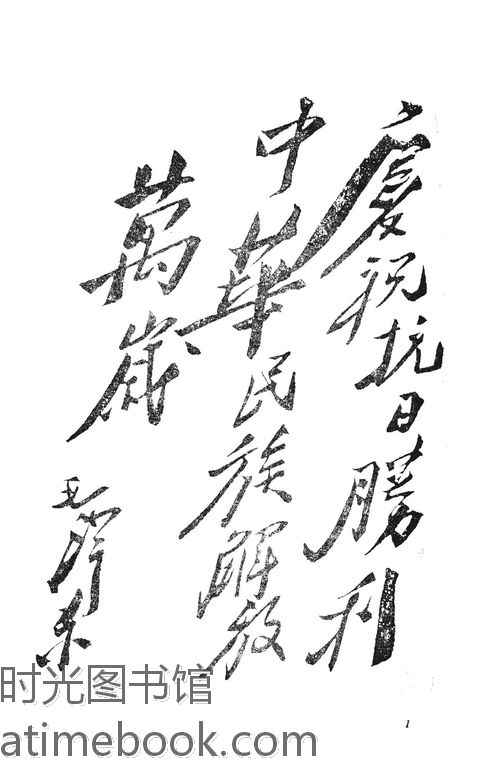 慶祝抗日勝利
中華民族解放
萬歲
毛澤東
1
时光图书馆
atimebook.com